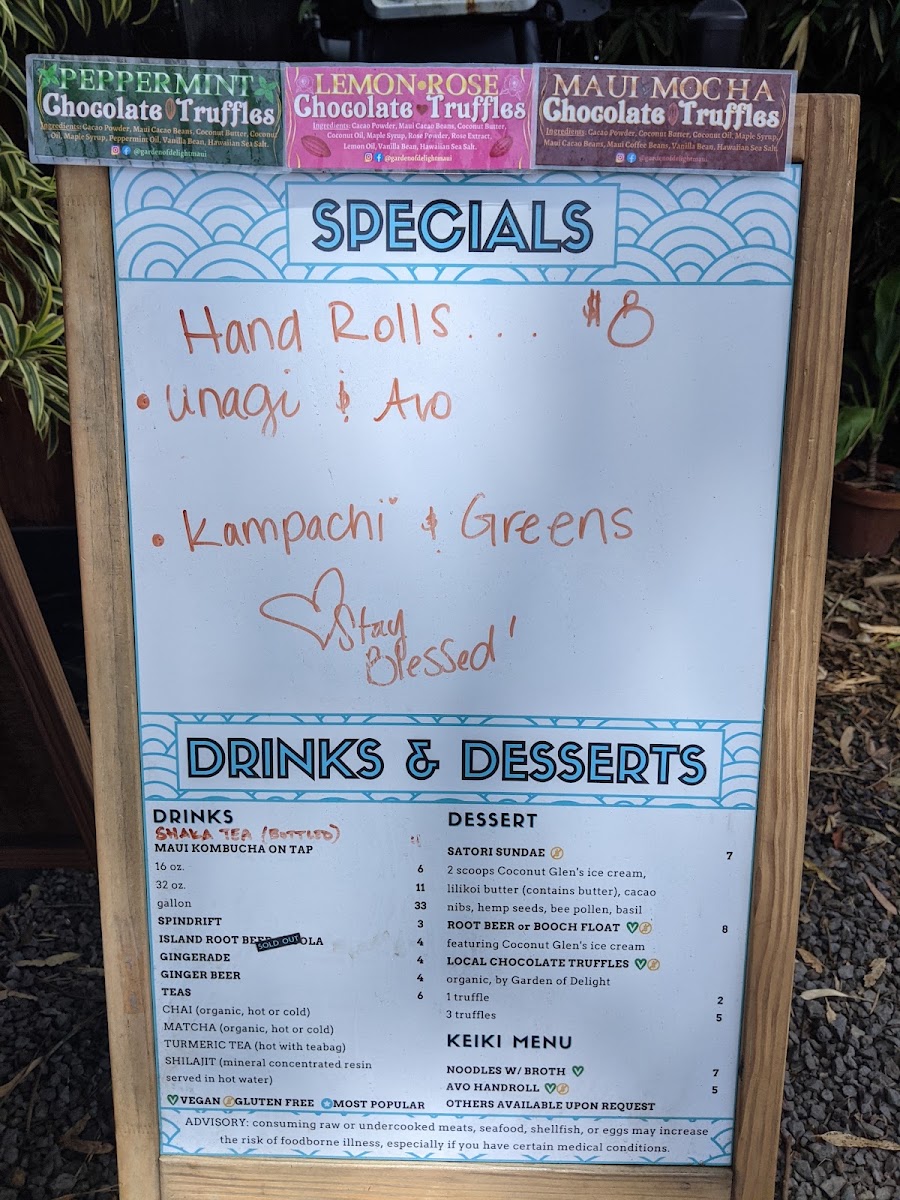 PEPPERMINT
Chocolate Truffles
Ingredients: Cacao Powder, Maui Cacao Beans, Coconut Butter, Coconut
Oil, Maple Syrup, Peppermint Oil, Vanilla Bean, Hawaiian Sea Salt.
@gardenofdelightmaui
LEMON•ROSE
Chocolate Truffles
Ingredients: Cacao Powder, Maui Cacao Beans, Coconut Butter,
Coconut Oil, Maple Syrup, Rose Powder, Rose Extract,
Lemon Oil, Vanilla Bean, Hawaiian Sea Salt.
@gardenofdelightmaui
MAUI MOCHA
Chocolate Truffles
Ingredients: Cacao Powder, Coconut Butter, Coconut Oil, Maple Syrup,
Maui Cacao Beans, Maui Coffee Beans, Vanilla Bean, Hawaiian Sea Salt.
@gardenofdelightmaui
SPECIALS
Hand Rolls... $8
• Unagi & Avo
• Kampachi & Greens
Stay
Blessed!
DRINKS & DESSERTS
DRINKS
SHAKA TEA (BOTTLED)
MAUI KOMBUCHA ON TAP
16 oz. 6
32 oz. 11
gallon 33
SPINDRIFT 3
ISLAND ROOT BEER OLA 4
SOLD OUT
GINGERADE 4
GINGER BEER 4
TEAS 6
CHAI (organic, hot or cold)
MATCHA (organic, hot or cold)
TURMERIC TEA (hot with teabag)
SHILAJIT (mineral concentrated resin
served in hot water)
VEGAN GLUTEN FREE MOST POPULAR
DESSERT
SATORI SUNDAE 7
2 scoops Coconut Glen's ice cream,
lilikoi butter (contains butter), cacao
nibs, hemp seeds, bee pollen, basil
ROOT BEER or BOOCH FLOAT 8
featuring Coconut Glen's ice cream
LOCAL CHOCOLATE TRUFFLES
organic, by Garden of Delight
1 truffle 2
3 truffles 5
KEIKI MENU
NOODLES W/ BROTH 7
AVO HANDROLL 5
OTHERS AVAILABLE UPON REQUEST
ADVISORY: consuming raw or undercooked meats, seafood, shellfish, or eggs may increase
the risk of foodborne illness, especially if you have certain medical conditions.